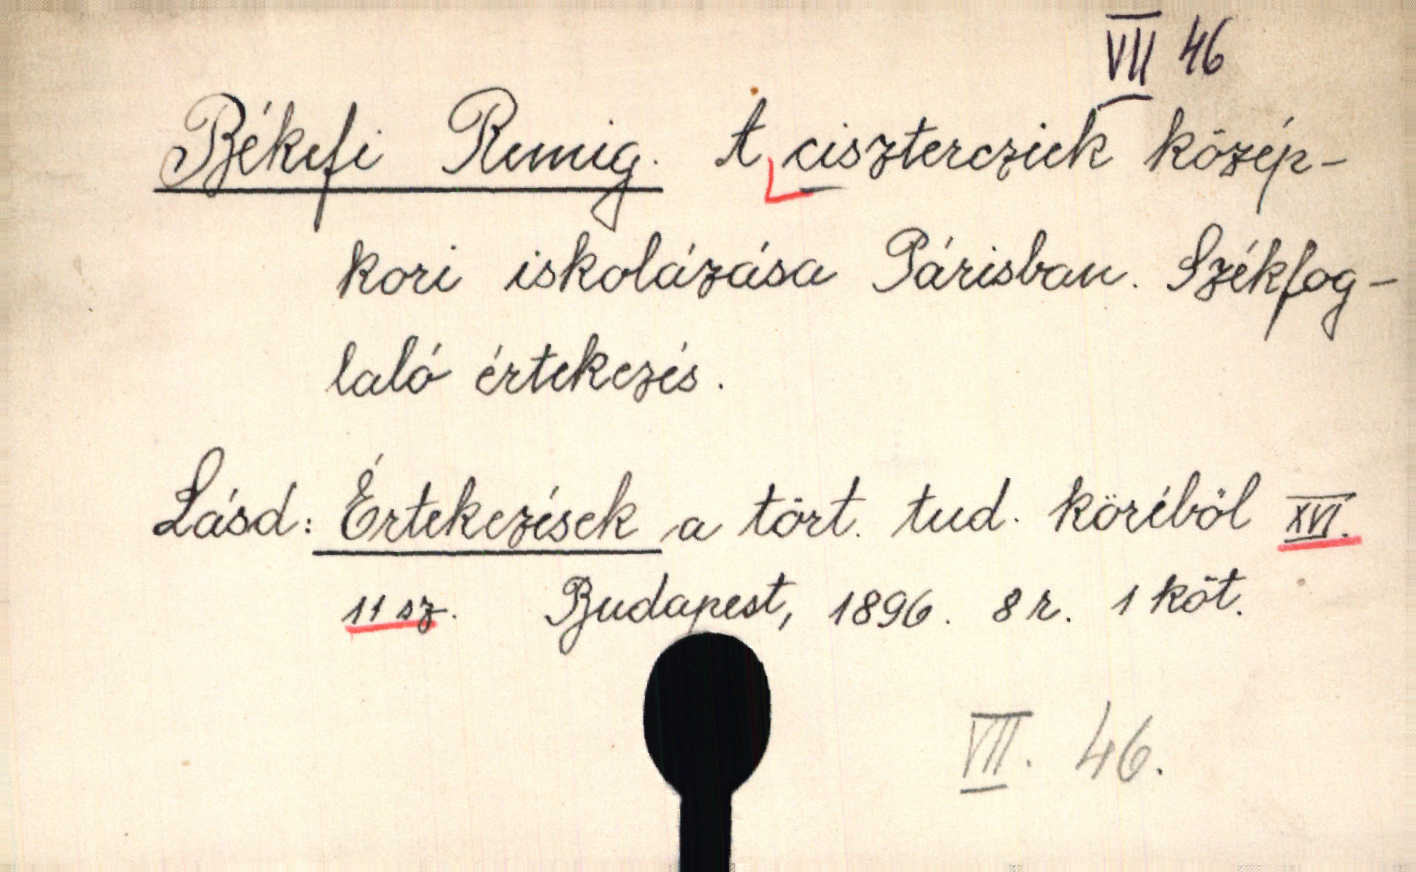 VII 46
Békefi Remig. A cisztercziek közép-
kori iskolázása Párisban. Székfog-
laló értekezés.
Lásd: Értekezések a tört. tud. köréböl XVI.
11 sz. Budapest, 1896. 8 r. 1 köt.
VII. 46.